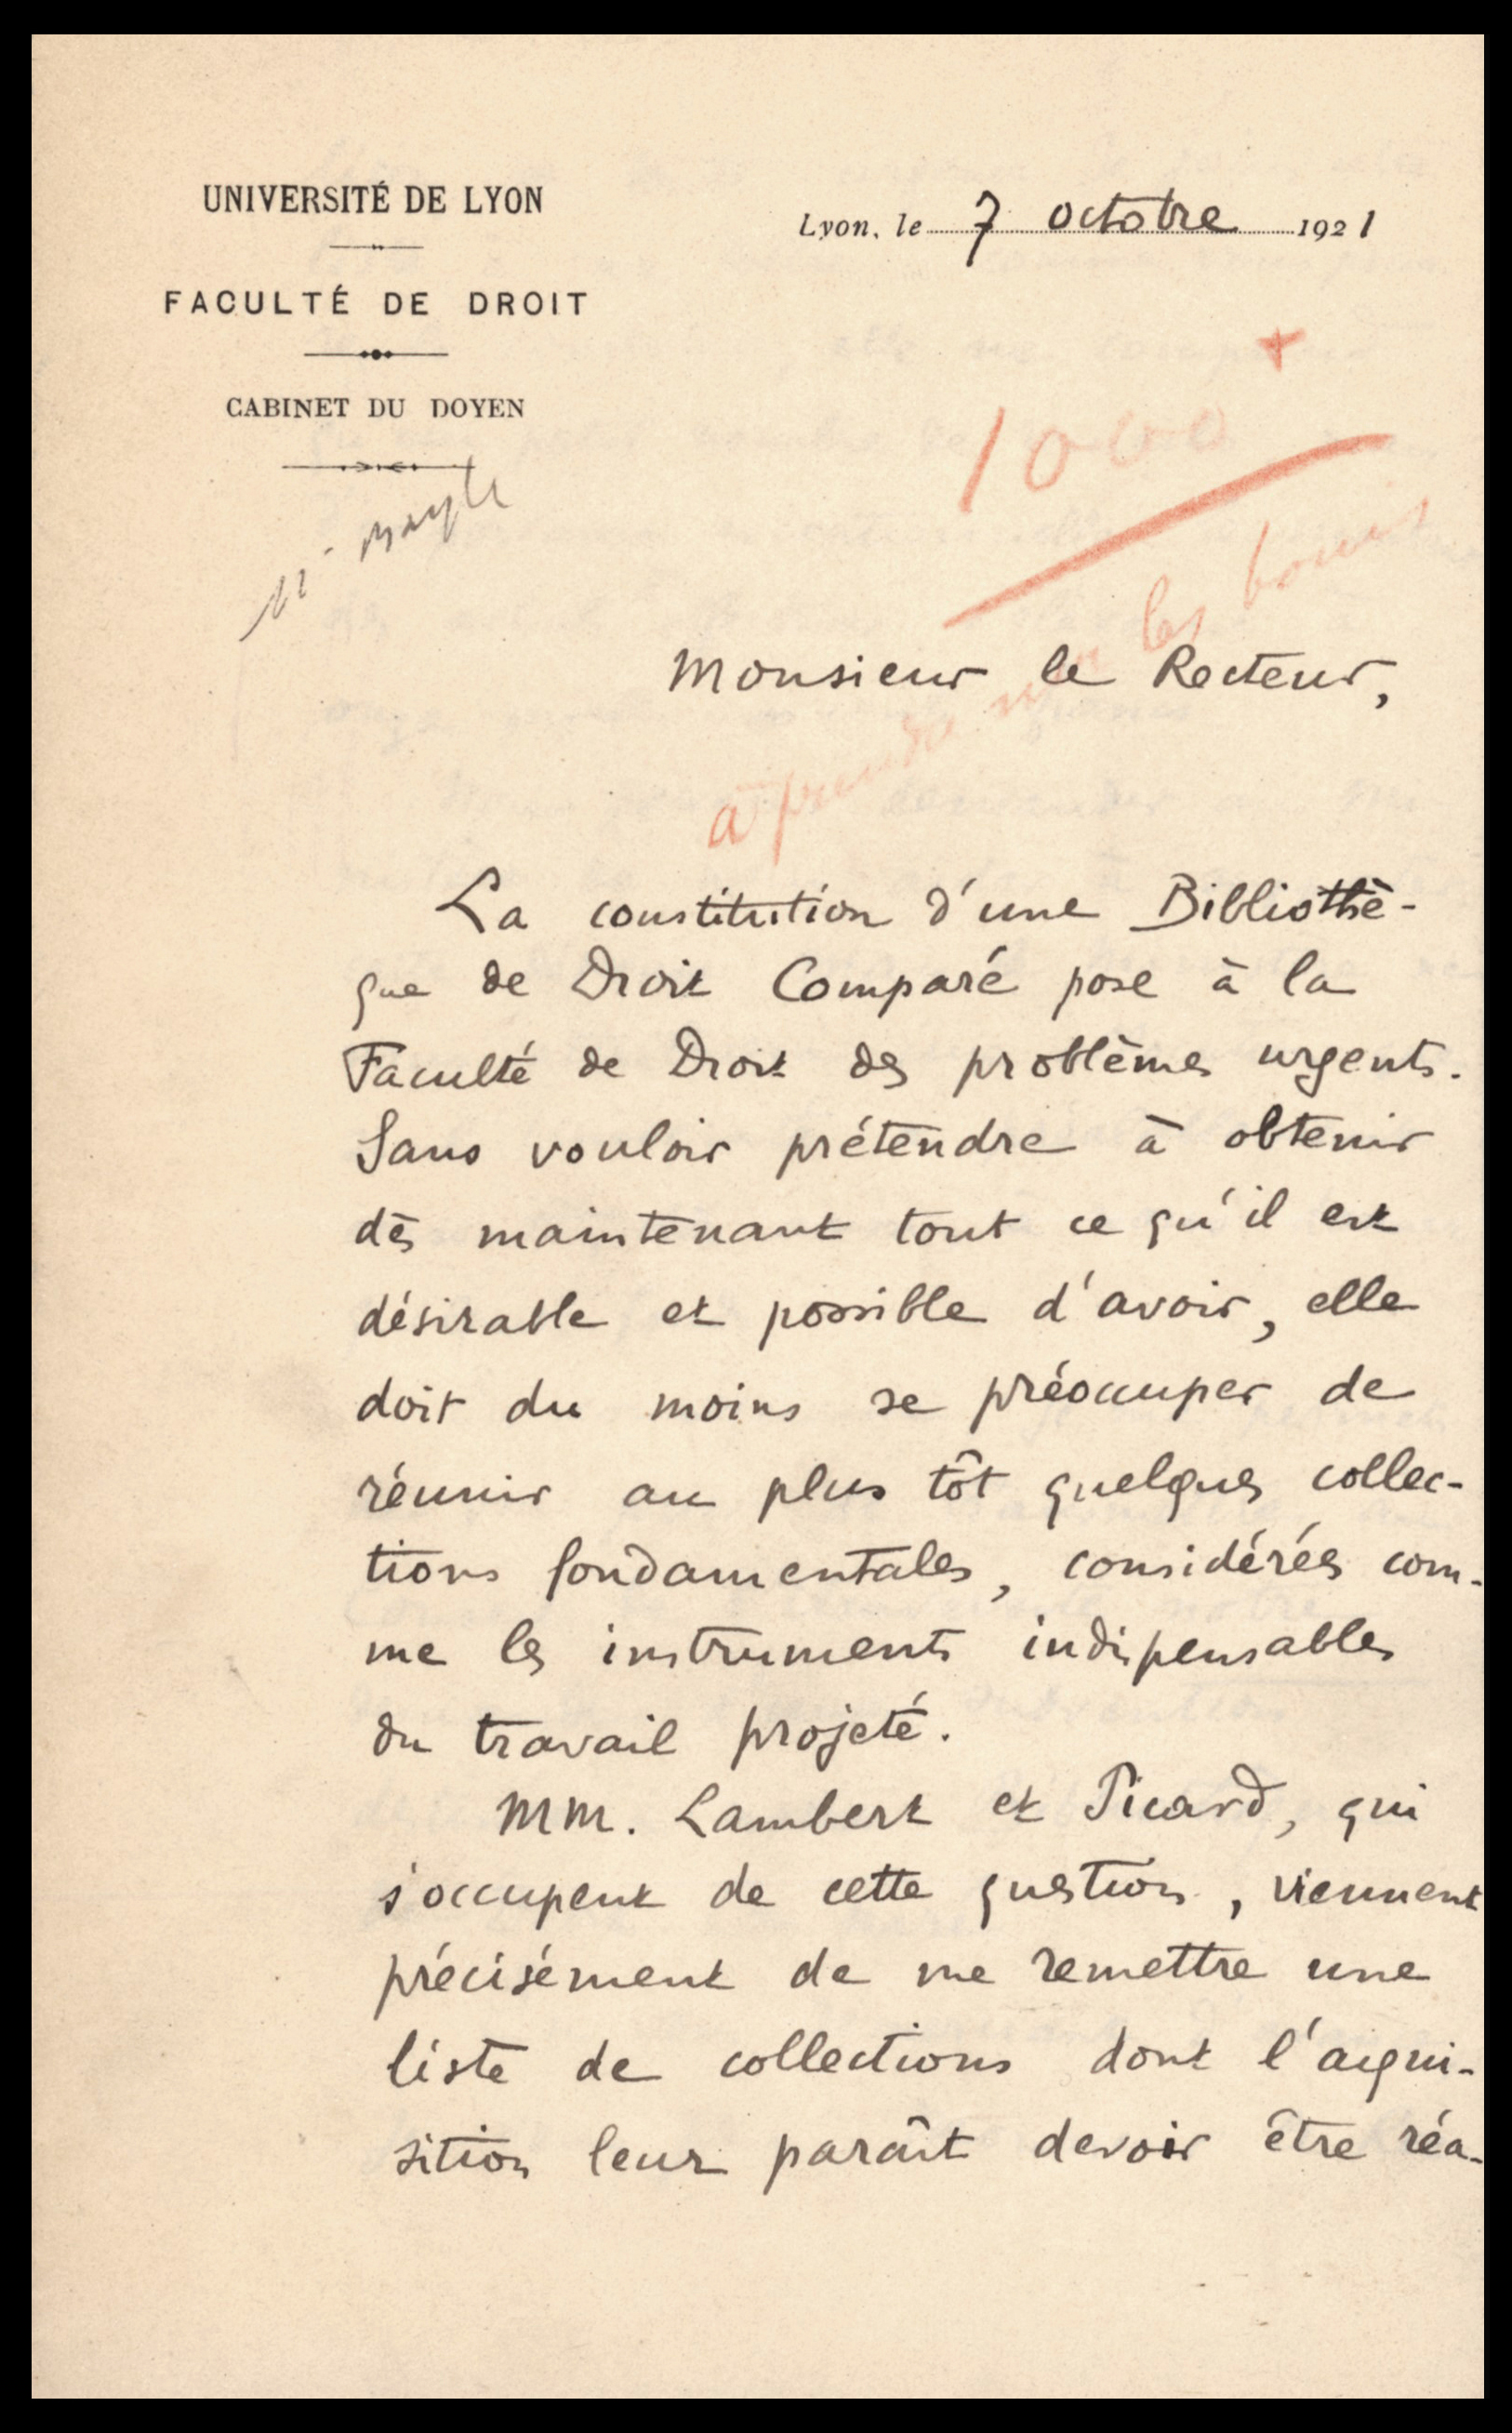 UNIVERSITÉ DE LYON
FACULTÉ DE DROIT
CABINET DU DOYEN
Lyon, le 7 octobre 1921
+
1000
à prendre sur les bonis
Monsieur le Recteur,
La constitution d'une Bibliothè-
que de Droit Comparé pose à la
Faculté de Droit des problèmes urgents.
Sans vouloir prétendre à obtenir
dès maintenant tout ce qu'il est
désirable et possible d'avoir, elle
doit du moins se préoccuper de
réunir au plus tôt quelques collec-
tions fondamentales, considérées com-
me les instruments indispensables
du travail projeté.
MM. Lambert et Picard, qui
s'occupent de cette question, viennent
précisément de me remettre une
liste de collections dont l'acqui-
sition leur paraît devoir être réa-